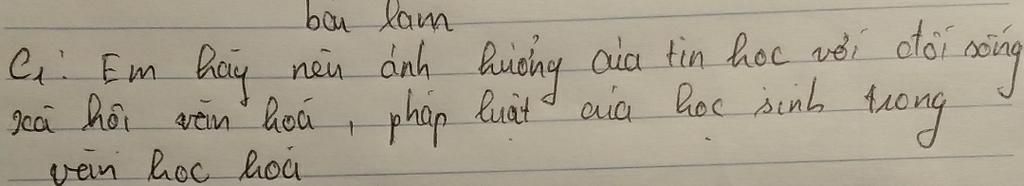 bài làm
C1: Em hãy nêu ảnh hưởng của tin học với đời sống
xã hội văn hoá, pháp luật của học sinh trong
văn học hoá